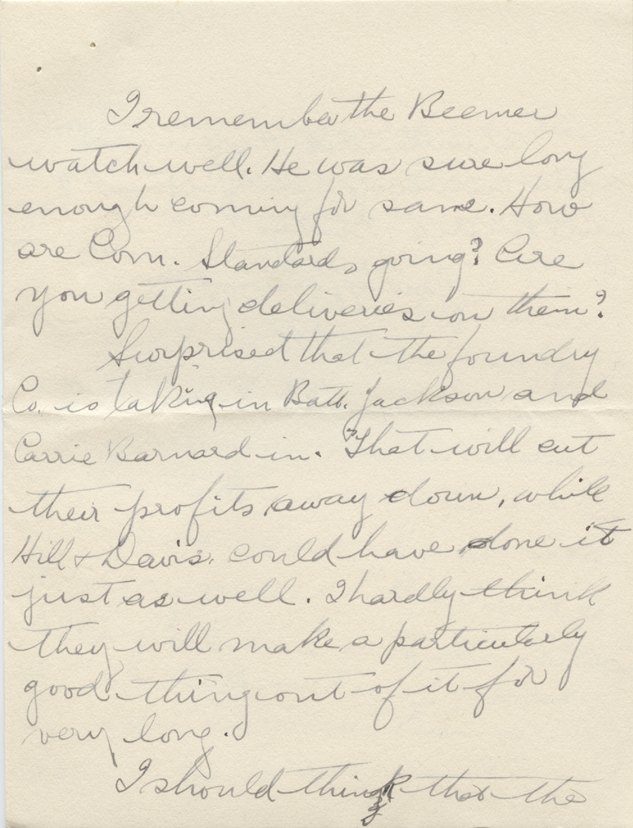 I remember the Beemer
watch well. He was sure long
enough coming for same. How
are Com. Standards going? Are
you getting deliveries on them?
Surprised that the foundry
Co. is taking in Batt. Jackson and
Carrie Barnard in. That will cut
their profits away down, while
Hill & Davis. could have done it
just as well. I hardly think
they will make a particularly
good thing out of it for
very long.
I should think that the